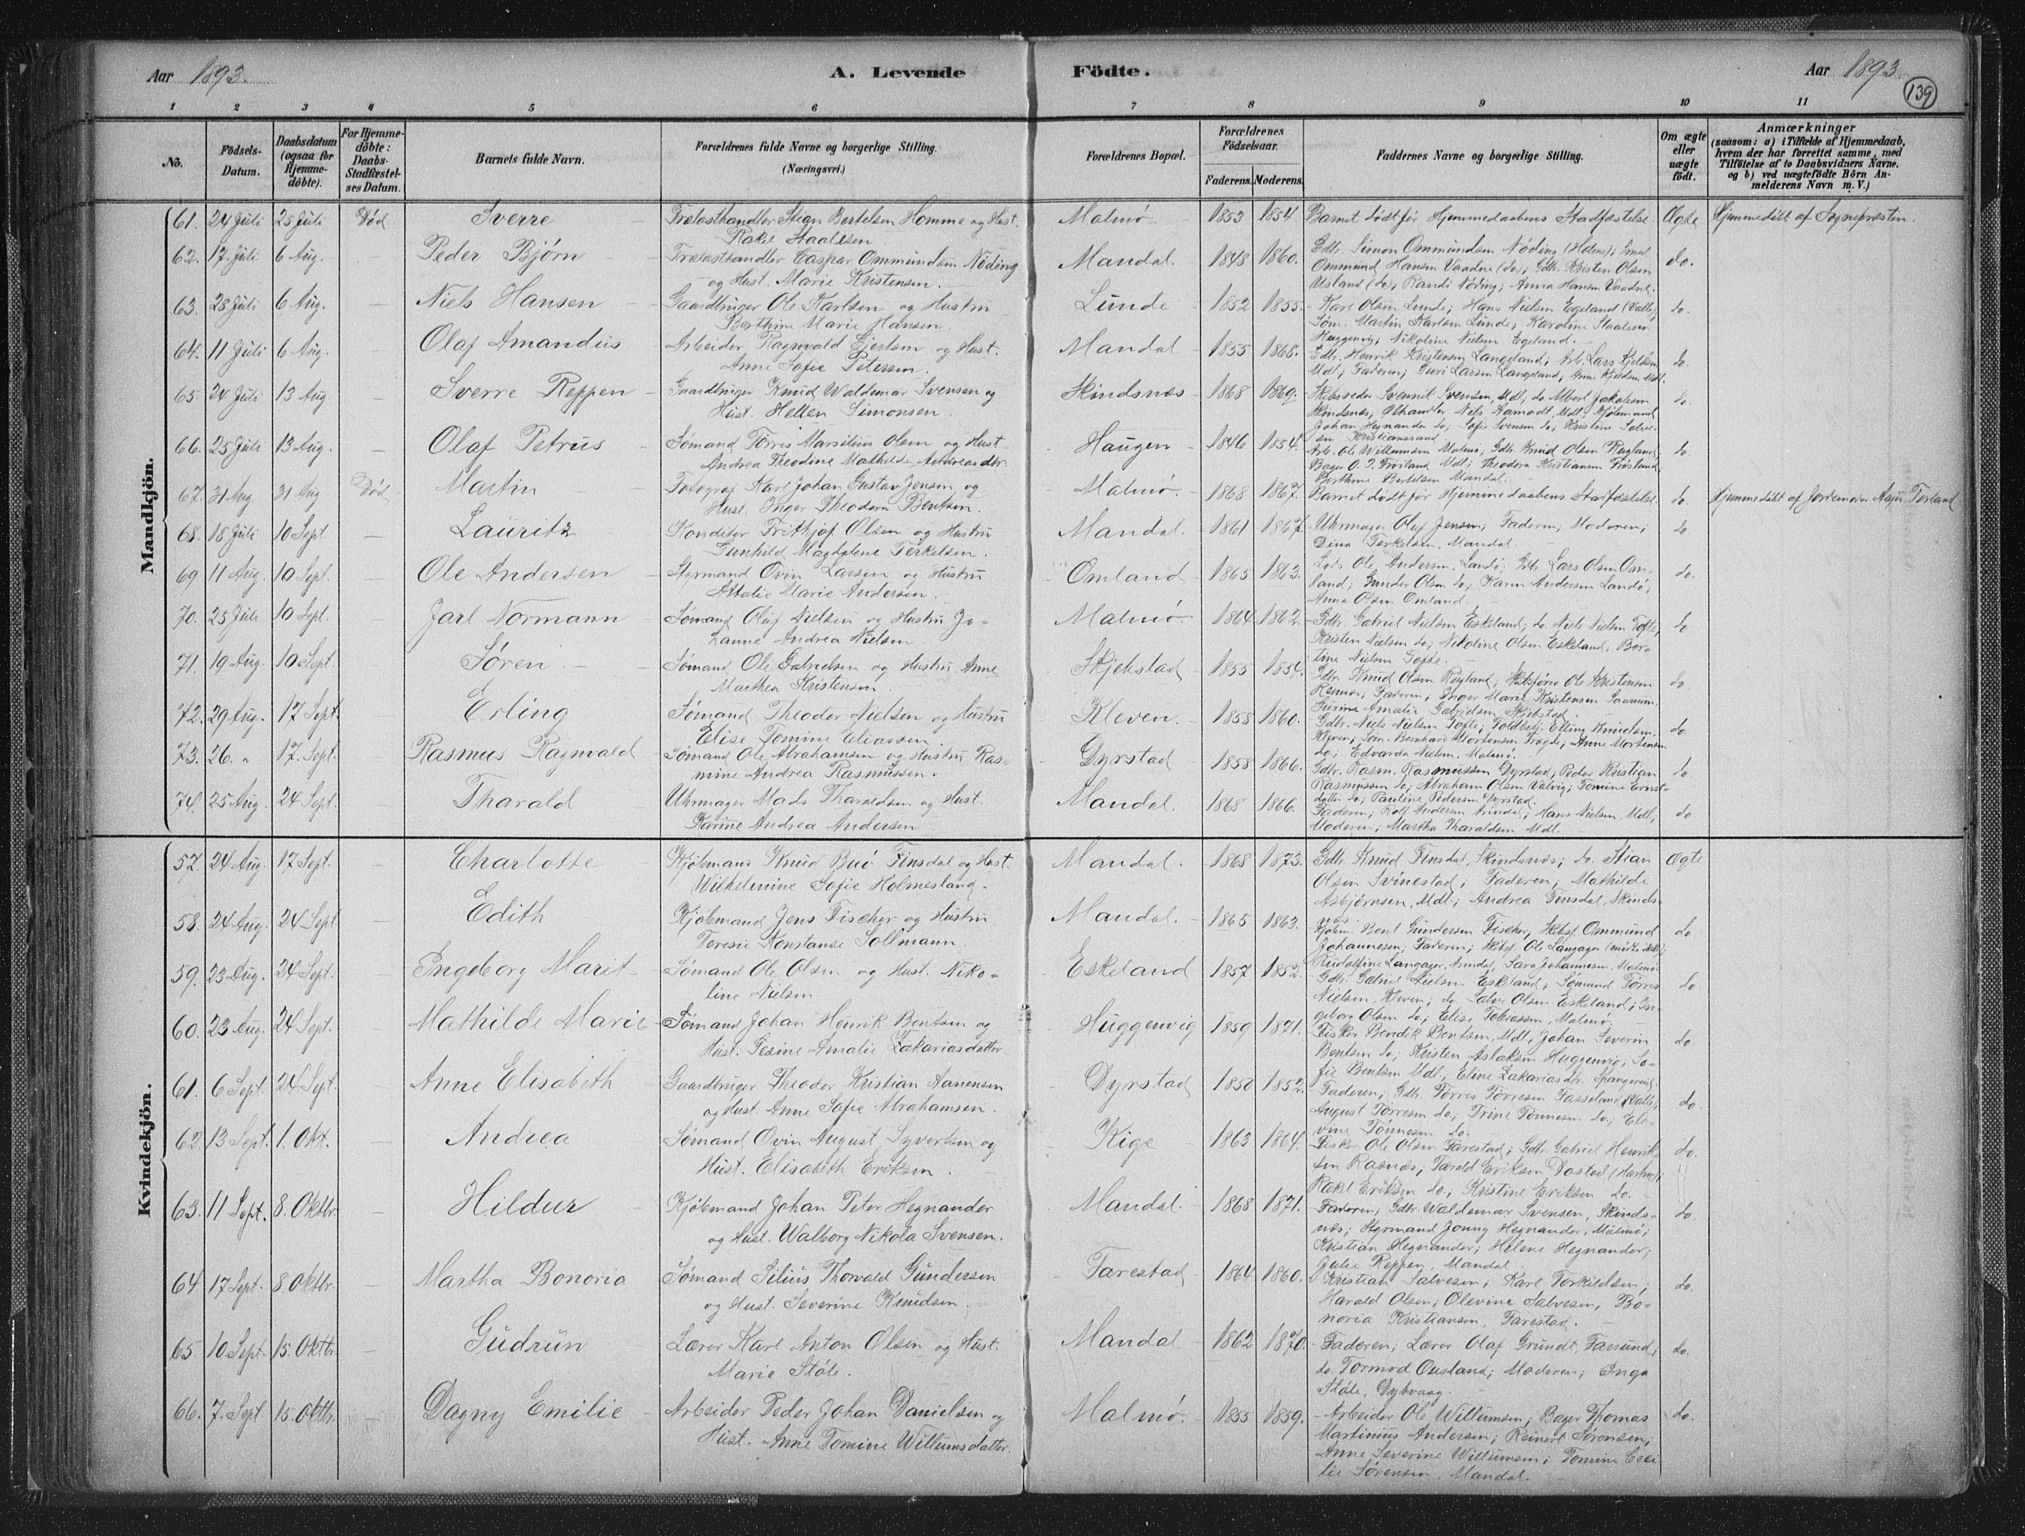 Aar 1893. A. Levende Födte. Aar 1893.
139
1 2 3 4 5 6 7 8 9 10 11
No. Födsels-Datum. Daabsdatum (ogsaa for Hjemme-döbte). For Hjemme-döbte: Daabs-Stadfæstel-ses Datum. Barnets fulde Navn. Forældrenes fulde Navne og borgerlige Stilling. (Næringsvei.) Forældrenes Bopæl. Forældrenes Födselsaar. Faderens. Moderens. Faddernes Navne og borgerlige Stilling. Om ægte eller uægte födt. Anmærkninger (saasom: a) i Tilfælde af Hjemmedaab, hvem der har forrettet samme, med Tilföielse af to Daabsvidners Navne, og b) ved uægtefödte Börn An-melderens Navn m. V.)
Mandkjön.
61. 24 Juli 25 Juli Død Sverre Trælasthandler Stian Bertelsen Homme og Hust. Malmø 1853 1854 Barnet dødt før Hjemmedaabens Stadfæstelse. Ægte Hjemmedøbt af Sognepresten.
Rakel Staalesen
62. 17 Juli 6 Aug. — Peder Bjørn Trælasthandler Casper Ommundsen Nøding Mandal. 1848 1860. Gdbr. Simon Ommundsen Nøding (Halsaa); Smed do.
og Hust. Marie Kristensen. Ommund Hansen Vaadne (do); Gdbr. Kristen Olsen
Usland (do); Randi Nøding; Anna Hansen Vaadne.
63. 28 Juli 6 Aug. — Niels Hansen Gaardbruger Ole Karlsen og Hustru Lunde 1852 1855. Karl Olsen Lunde; Hans Nielsen Egeland do.
Berthine Marie Hansen. Søm. Martin Karlsen Lunde; Karoline Staalesen
Huggenvig; Nikoline Nielsen Egeland.
64. 11 Juli 6 Aug. — Olaf Amandus Arbeider Ragnvald Gjertsen og Hust. Mandal 1855 1868. Gdbr. Henrik Kristensen Langeland; Arb. Lars Kjeldsen do.
Anne Sofie Petersen. Mdl; Faderen; Guri Larsen Langeland; Anne Kjeldsen Mdl.
65. 24 Juli 13 Aug — Sverre Reppen Gaardbruger Knud Waldemar Svensen og Skindsnæs 1868 1869. Skibsreder Svennil Svensen, Mdl; do Albert Jakobsen do.
Hust. Hellen Simonsen. Skindsnæs; Niels Aamodt, Mdl; Kjøbmand
Johan Hegnander do; Sofie Svensen do; Kristine Salve-
sen Kristianssand
66. 25 Juli 13 Aug. — Olaf Petrus Sømand Tørres Marselius Olsen og Hust. Haugen 1846 1854. Arb. Ole Willumsen Malmø; Gdbr. Knud Olsen Røgland; do.
Andrea Theodine Mathilde Andreasdtr. Bager O. T. Frøiland Mdl; Theodora Kristiansen Frøiland
Berthine Bertelsen Mandal.
67. 31 Aug. 31 Aug Død Martin Fotograf Karl Johan Gustav Jensen og Malmø. 1868 1867. Barnet dødt før Hjemmedaabens Stadfæstelse. do. Hjemmedøbt af Jordemoder Torland
Hust. Inger Theodora Bentsen.
68. 18 Juli 10 Sept — Lauritz Konditor Frithjof Olsen og Hustru Mandal 1861 1867. Uhrmager Olaf Jensen; Faderen; Moderen; do
Gunhild Magdalene Terkelsen. Dina Terkelsen, Mandal.
69 11 Aug. 10 Sept. — Ole Andersen Styrmand Ovin Larsen og Hustru Omland 1865 1863. Lods Ole Andersen Landø; Gdbr. Lars Olsen Om- do.
Attalie Marie Andersen. land; Gunder Olsen do; Karen Andersen Landø;
Anna Olsen Omland.
70. 25 Juli 10 Sept. — Jarl Normann Sømand Oluf Nielsen og Hustru Jo- Malmø 1864 1862. Gdbr. Gabriel Nielsen Eskeland; do Niels Nielsen Tofte; do
hanne Andrea Nielsen Kristen Nielsen do; Nikoline Olsen Eskeland; Ber-
tine Nielsen Tofte.
71. 19 Aug. 10 Sept. — Søren Sømand Ole Gabrielsen og Hustru Anne Skjebstad 1855 1854. Gdbr. Knud Olsen Røgland; Skibsfører Ole Kristensen do
Marthea Kristensen. Faderen; Inger Marie Kristensen
Gurine Amalie Gabrielsen Skjebstad
72. 29 Aug. 17 Sept. — Erling Sømand Theodor Nielsen og Hustru Kleven. 1858 1860. Gdbr. Niels Nielsen Tofte; Elling Knudsen, do
Elise Tomine Eliassen Kleven; Søm. Bernhard Mortensen Tregde; Anne Mortensen
do; Edvarda Nielsen Malmø.
73. 26. " 17. Sept. — Rasmus Ragnvald Sømand Ole Abrahamsen og Hustru Ras- Dyrstad 1858 1866. Gdbr. Rasm. Rasmussen Dyrstad; Peder Kristian do
mine Andrea Rasmussen. Rasmussen do; Abraham Olsen Valvig; Tomine Ernst-
datter do; Pauline Pedersen Dyrstad.
74. 25 Aug. 24 Sept. — Tharald Uhrmager Mads Tharaldsen og Hust. Mandal. 1868 1866. Faderen; Rolf Andersen Arendal; Hans Nielsen Mdl; do
Karine Andrea Andersen Moderen; Martha Tharaldsen Mdl.
Kvindekjön.
57. 24 Aug 17 Sept. — Charlotte Kjøbmand Knud Buø Finsdal og Hust. Mandal. 1868 1873. Gdbr. Knud Finsdal, Skindsnæs; do. Stian Ægte
Wilhelmine Sofie Holmesland. Olsen Svinestad; Faderen; Mathilde
Asbjørnsen, Mdl; Andrea Finsdal, Skinds-
næs.
58. 24 Aug. 24 Sept — Edith Kjøbmand Jens Fischer og Hustru Mandal. 1865 1863. Kjøbm. Bent Gundersen Fischer, Skibsf. Ommund do.
Teresie Konstanse Sollmann. Johannesen; Faderen; Skibsf. Ole Langager
Rudolfine Langager, Arendal, Sara Johannesen, Malmø
59. 23 Aug. 24 Sept. — Ingeborg Marit Sømand Ole Olsen og Hust. Niko- Eskeland 1857 1852. Gdbr. Gabriel Nielsen Eskeland; Sømand Tørres do
line Nielsen Nielsen, Kleven; do Salve Olsen Eskeland; In-
geborg Olsen do; Elise Tobiassen, Malmø.
60. 23 Aug. 24 Sept. — Mathilde Marie Sømand Johan Henrik Bentsen og Huggenvig 1859 1871. Fisker Bendik Bentsen, Mdl, Johan Severin do
Hust. Tesine Amalie Zakariasdatter Bentsen do; Kristen Aslaksen Huggenvig; So-
fie Bentsen Mdl, Eline Zakariasdtr. Spangereid.
61. 6 Sept. 24 Sept. — Anne Elisabeth Gaardbruger Theodor Kristian Aanensen Dyrstad 1850 1852. Faderen; Gdbr. Tørres Tørresen Tasseland; do.
og Hust. Anne Sofie Abrahamsen. August Tørresen do; Trine Tønnesen do; Ele-
vine Tønnesen do.
62. 13 Sept. 1. Okt. — Andrea Sømand Ovin August Syvertsen og Kige 1863 1864. Fisker Ole Olsen Farestad; Gdbr. Gabriel Henrik- do.
Hust. Elisabeth Eriksen. sen Rasnæs; Tarald Eriksen Dostad
Rakel Eriksen do; Kristine Eriksen do.
63. 11 Sept. 8. Oktbr. — Hildur Kjøbmand Johan Peter Hegnander Mandal 1868 1871. Faderen; Gdbr. Waldemar Svensen, Skinds- do.
og Hust. Walborg Nikola Svensen. næs; Styrmand Jonny Hegnander, Malmø;
Kristian Hegnander; Helene Hegnander;
Julie Reppen, Mandal.
64. 17 Sept. 8 Oktbr. — Martha Bonoria Sømand Silius Thorvald Gundersen Farestad 1864 1860. Kristian Salvesen; Karl Torkildsen; do.
og Hust. Severine Knudsen. Harald Olsen; Olevine Salvesen, Bo-
noria Kristiansen, Farestad.
65 10 Sept. 15. Oktbr. — Gudrun Lærer Karl Anton Olsen og Hust. Mandal 1862 1870. Faderen; Lærer Olaf Grundt, Farsund; do.
Marie Støle. do. Tormod Ousland; Moderen; Inga
Støle, Dybvaag.
66. 7. Sept 15. Oktbr. — Dagny Emilie Arbeider Peder Johan Danielsen og Malmø. 1855 1859. Arbeider Ole Willumsen; Bager Thomas do.
Hust. Anne Tomine Willumsdatter. Martinius Andersen; Reinert Sørensen;
Anne Severine Willumsen; Tomine Ceci-
lie Sørensen, Mandal.